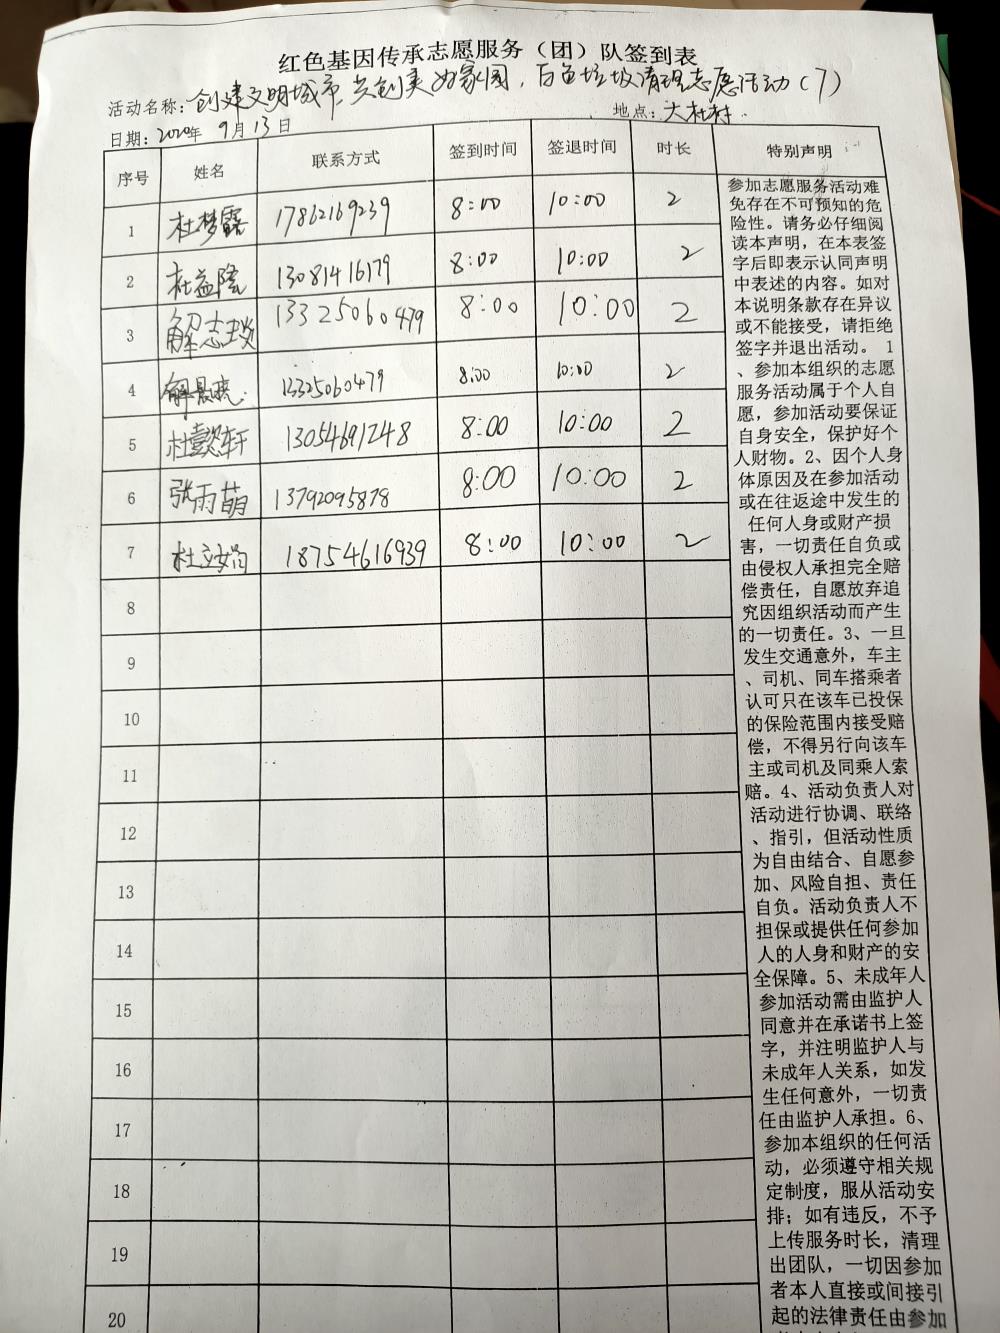 红色基因传承志愿服务（团）队签到表
活动名称：创建文明城市，共创美好家园，白色垃圾清理志愿活动（7）
日期：2020年 9月13日 地点：大杜村
序号 姓名 联系方式 签到时间 签退时间 时长 特别声明
1 杜梦露 17862169239 8:00 10:00 2
2 杜益隆 13081416179 8:00 10:00 2
3 解志琰 13325060479 8:00 10:00 2
4 解晨亮 13325060479 8:00 10:00 2
5 杜懿轩 13054691248 8:00 10:00 2
6 张雨萌 13792095878 8:00 10:00 2
7 杜文 18754616939 8:00 10:00 2
8
9
10
11
12
13
14
15
16
17
18
19
20
参加志愿服务活动难
免存在不可预知的危
险性。请务必仔细阅
读本声明，在本表签
字后即表示认同声明
中表述的内容。如对
本说明条款存在异议
或不能接受，请拒绝
签字并退出活动。 1
、参加本组织的志愿
服务活动属于个人自
愿，参加活动要保证
自身安全，保护好个
人财物。2、因个人身
体原因及在参加活动
或在往返途中发生的
任何人身或财产损
害，一切责任自负或
由侵权人承担完全赔
偿责任，自愿放弃追
究因组织活动而产生
的一切责任。3、一旦
发生交通意外，车主
、司机、同车搭乘者
认可只在该车已投保
的保险范围内接受赔
偿，不得另行向该车
主或司机及同乘人索
赔。4、活动负责人对
活动进行协调、联络
、指引，但活动性质
为自由结合、自愿参
加、风险自担、责任
自负。活动负责人不
担保或提供任何参加
人的人身和财产的安
全保障。5、未成年人
参加活动需由监护人
同意并在承诺书上签
字，并注明监护人与
未成年人关系，如发
生任何意外，一切责
任由监护人承担。6、
参加本组织的任何活
动，必须遵守相关规
定制度，服从活动安
排；如有违反，不予
上传服务时长，清理
出团队，一切因参加
者本人直接或间接引
起的法律责任由参加